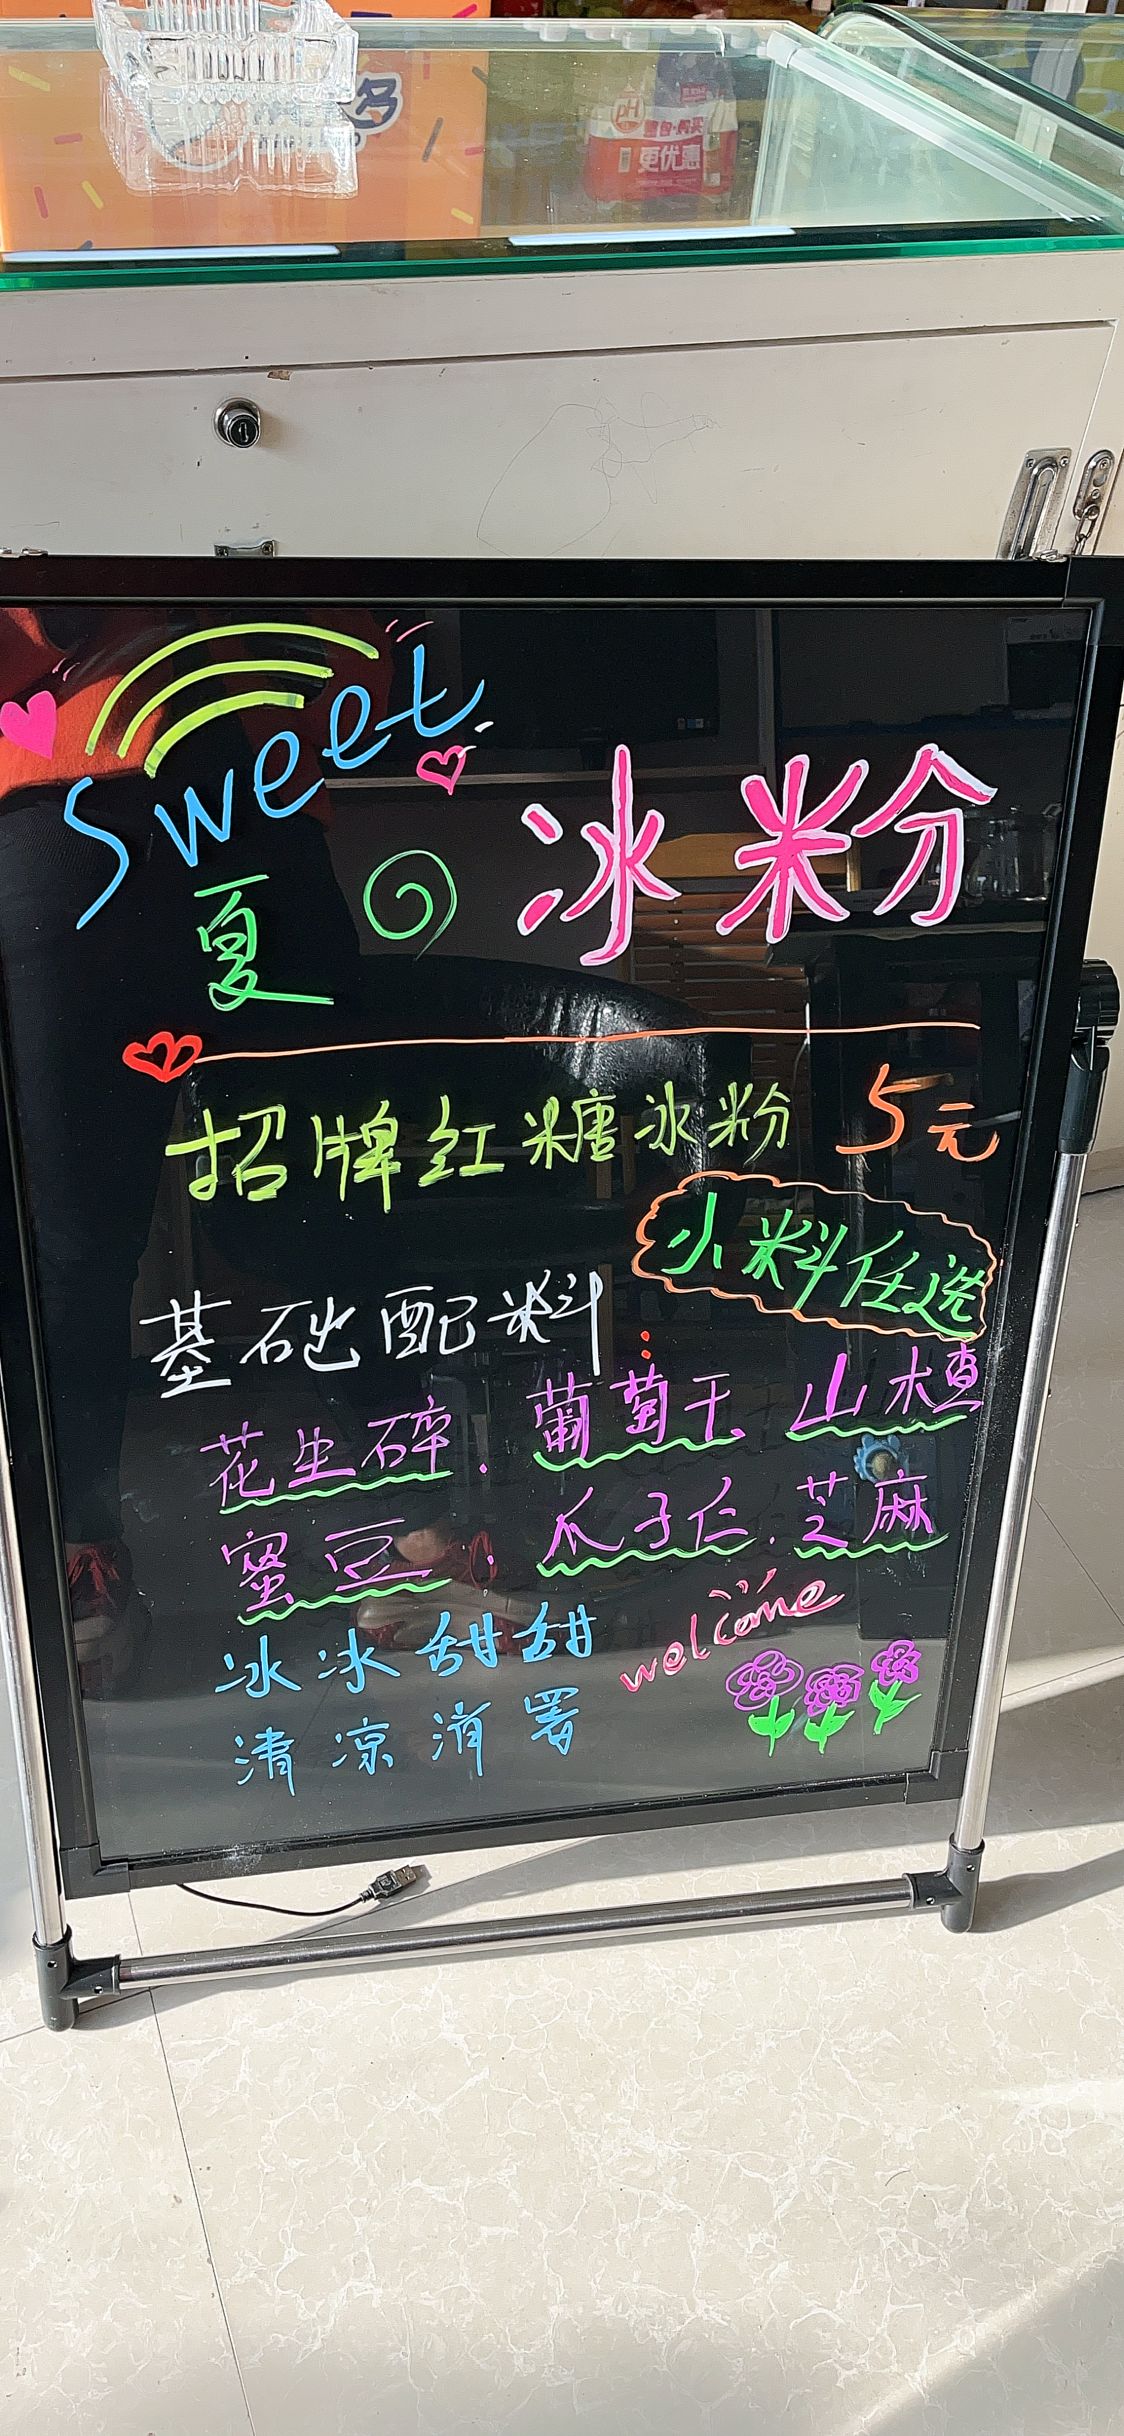 多
pH
整包购买
更优惠
Sweet
夏の 冰粉
招牌红糖冰粉 5元
小料任选
基础配料:
花生碎. 葡萄干. 山楂
蜜豆. 瓜子仁. 芝麻
冰冰甜甜
welcome
清凉消署